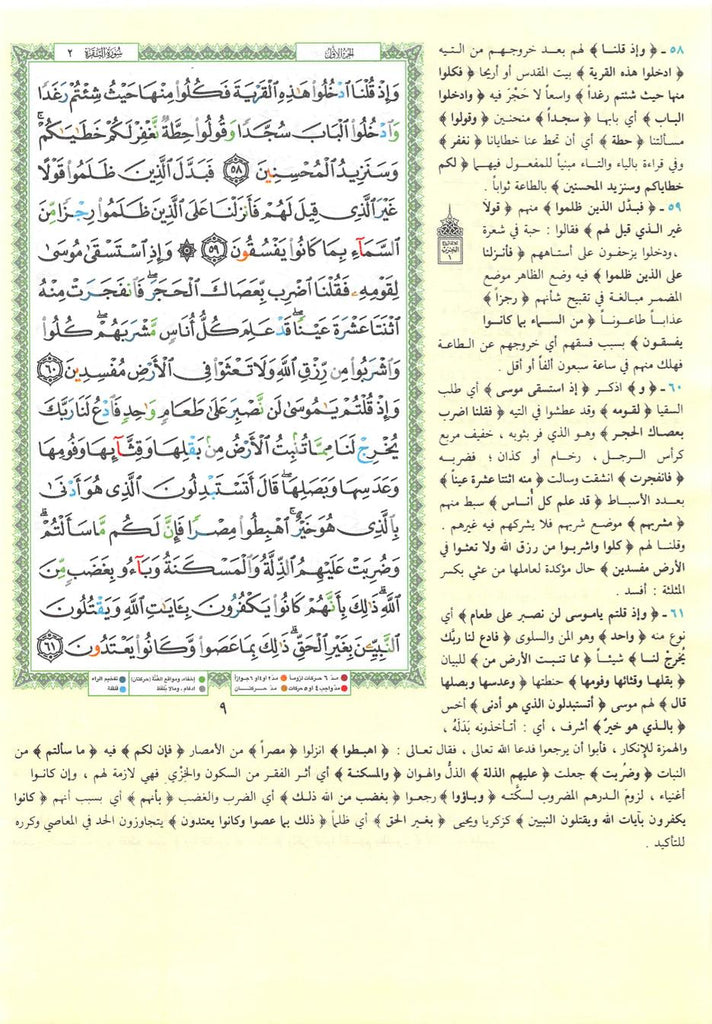 الجزء الأول
سورة البقرة ٢
وَإِذْ قُلْنَا ٱدْخُلُوا۟ هَـٰذِهِ ٱلْقَرْيَةَ فَكُلُوا۟ مِنْهَا حَيْثُ شِئْتُمْ رَغَدًا
وَٱدْخُلُوا۟ ٱلْبَابَ سُجَّدًا وَقُولُوا۟ حِطَّةٌ نَّغْفِرْ لَكُمْ خَطَـٰيَـٰكُمْ ۚ
وَسَنَزِيدُ ٱلْمُحْسِنِينَ ٥٨ فَبَدَّلَ ٱلَّذِينَ ظَلَمُوا۟ قَوْلًا
غَيْرَ ٱلَّذِى قِيلَ لَهُمْ فَأَنزَلْنَا عَلَى ٱلَّذِينَ ظَلَمُوا۟ رِجْزًا مِّنَ
ٱلسَّمَآءِ بِمَا كَانُوا۟ يَفْسُقُونَ ٥٩ ۞ وَإِذِ ٱسْتَسْقَىٰ مُوسَىٰ
لِقَوْمِهِۦ فَقُلْنَا ٱضْرِب بِّعَصَاكَ ٱلْحَجَرَ ۖ فَٱنفَجَرَتْ مِنْهُ
ٱثْنَتَا عَشْرَةَ عَيْنًا ۖ قَدْ عَلِمَ كُلُّ أُنَاسٍ مَّشْرَبَهُمْ ۖ كُلُوا۟
وَٱشْرَبُوا۟ مِن رِّزْقِ ٱللَّهِ وَلَا تَعْثَوْا۟ فِى ٱلْأَرْضِ مُفْسِدِينَ ٦٠
وَإِذْ قُلْتُمْ يَـٰمُوسَىٰ لَن نَّصْبِرَ عَلَىٰ طَعَامٍ وَٰحِدٍ فَٱدْعُ لَنَا رَبَّكَ
يُخْرِجْ لَنَا مِمَّا تُنۢبِتُ ٱلْأَرْضُ مِنۢ بَقْلِهَا وَقِثَّآئِهَا وَفُومِهَا
وَعَدَسِهَا وَبَصَلِهَا ۖ قَالَ أَتَسْتَبْدِلُونَ ٱلَّذِى هُوَ أَدْنَىٰ
بِٱلَّذِى هُوَ خَيْرٌ ۚ ٱهْبِطُوا۟ مِصْرًا فَإِنَّ لَكُم مَّا سَأَلْتُمْ ۗ
وَضُرِبَتْ عَلَيْهِمُ ٱلذِّلَّةُ وَٱلْمَسْكَنَةُ وَبَآءُو بِغَضَبٍ مِّنَ
ٱللَّهِ ۗ ذَٰلِكَ بِأَنَّهُمْ كَانُوا۟ يَكْفُرُونَ بِـَٔايَـٰتِ ٱللَّهِ وَيَقْتُلُونَ
ٱلنَّبِيِّـۧنَ بِغَيْرِ ٱلْحَقِّ ۗ ذَٰلِكَ بِمَا عَصَوا۟ وَّكَانُوا۟ يَعْتَدُونَ ٦١
مدّ ٦ حركات لزوماً مدّ ٢ أو ٤ أو ٦ جوازاً إخفاء، ومواقع الغنّة (حركتان) تفخيم الراء
مدّ واجب ٤ أو ٥ حركات مدّ حركتان إدغام، وما لا يُلفظ قلقلة
٩
٥٨ ـ ﴿ وإذ قلنا ﴾ لهم بعد خروجهم من التيه
﴿ ادخلوا هذه القرية ﴾ بيت المقدس أو أريحا ﴿ فكلوا
منها حيث شئتم رغداً ﴾ واسعاً لا حَجْرَ فيه ﴿ وادخلوا
الباب ﴾ أي بابها ﴿ سجداً ﴾ منحنين ﴿ وقولوا ﴾
مسألتنا ﴿ حطة ﴾ أي أن تحط عنا خطايانا ﴿ نغفر ﴾
وفي قراءة بالياء والتاء مبنياً للمفعول فيهما ﴿ لكم
خطاياكم وسنزيد المحسنين ﴾ بالطاعة ثواباً .
٥٩ ـ ﴿ فبدَّل الذين ظلموا ﴾ منهم ﴿ قولاً
غير الذي قيل لهم ﴾ فقالوا : حبة في شعرة
، ودخلوا يزحفون على أستاههم ﴿ فأنزلنا
على الذين ظلموا ﴾ فيه وضع الظاهر موضع
المضمر مبالغة في تقبيح شأنهم ﴿ رجزاً ﴾
عذاباً طاعوناً ﴿ من السماء بما كانوا
يفسقون ﴾ بسبب فسقهم أي خروجهم عن الطاعة
فهلك منهم في ساعة سبعون ألفاً أو أقل .
٦٠ ـ ﴿ و ﴾ اذكر ﴿ إذ استسقى موسى ﴾ أي طلب
السقيا ﴿ لقومه ﴾ وقد عطشوا في التيه ﴿ فقلنا اضرب
بعصاك الحجر ﴾ وهو الذي فر بثوبه ، خفيف مربع
كرأس الرجل ، رخام أو كذان ؛ فضربه
﴿ فانفجرت ﴾ انشقت وسالت ﴿ منه اثنتا عشرة عيناً ﴾
بعدد الأسباط ﴿ قد علم كل أُناس ﴾ سبط منهم
﴿ مشربهم ﴾ موضع شربهم فلا يشركهم فيه غيرهم .
وقلنا لهم ﴿ كلوا واشربوا من رزق الله ولا تعثوا في
الأرض مفسدين ﴾ حال مؤكدة لعاملها من عثي بكسر
المثلثة : أفسد .
٦١ ـ ﴿ وإذ قلتم ياموسى لن نصبر على طعام ﴾ أي
نوع منه ﴿ واحد ﴾ وهو المن والسلوى ﴿ فادع لنا ربك
يُخرجْ لنا ﴾ شيئاً ﴿ مما تنبت الأرض من ﴾ للبيان
﴿ بقلها وقثائها وفومها ﴾ حنطتها ﴿ وعدسها وبصلها
قال ﴾ لهم موسى ﴿ أتستبدلون الذي هو أدنى ﴾ أخس
﴿ بالذي هو خيرٌ ﴾ أشرف ، أي : أتأخذونه بَدَلَهُ ،
والهمزة للإنكار ، فأبوا أن يرجعوا فدعا الله تعالى ، فقال تعالى : ﴿ اهبطوا ﴾ انزلوا ﴿ مصراً ﴾ من الأمصار ﴿ فإن لكم ﴾ فيه ﴿ ما سألتم ﴾ من
النبات ﴿ وضُربت ﴾ جعلت ﴿ عليهم الذلة ﴾ الذلُّ والهوان ﴿ والمسكنة ﴾ أي أثر الفقر من السكون والخِزْي فهي لازمة لهم ، وإن كانوا
أغنياء ، لزومَ الدرهم المضروب لسكَّته ﴿ وباؤوا ﴾ رجعوا ﴿ بغضب من الله ذلك ﴾ أي الضرب والغضب ﴿ بأنهم ﴾ أي بسبب أنهم ﴿ كانوا
يكفرون بآيات الله ويقتلون النبيين ﴾ كزكريا ويحيى ﴿ بغير الحق ﴾ أي ظلماً ﴿ ذلك بما عصوا وكانوا يعتدون ﴾ يتجاوزون الحد في المعاصي وكرره
للتأكيد .